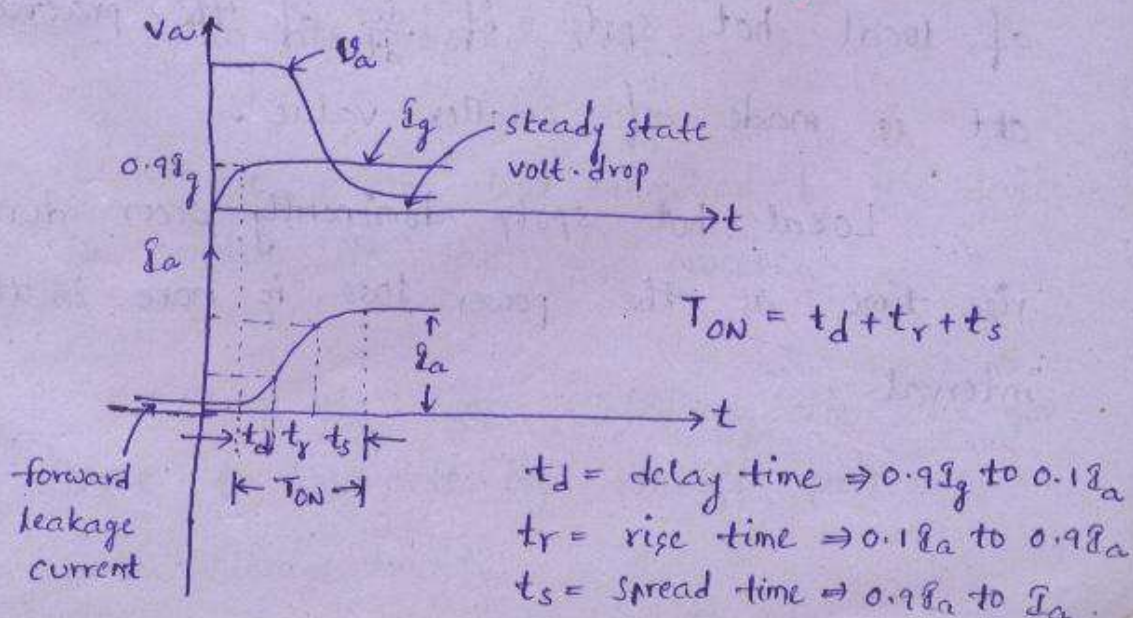 Va
Va
Ig
steady state
volt. drop
0.9Ig
t
Ia
TON = td + tr + ts
Ia
t
td tr ts
TON
forward
leakage
current
td = delay time ⇒ 0.9Ig to 0.1Ia
tr = rise time ⇒ 0.1Ia to 0.9Ia
ts = spread time ⇒ 0.9Ia to Ia.